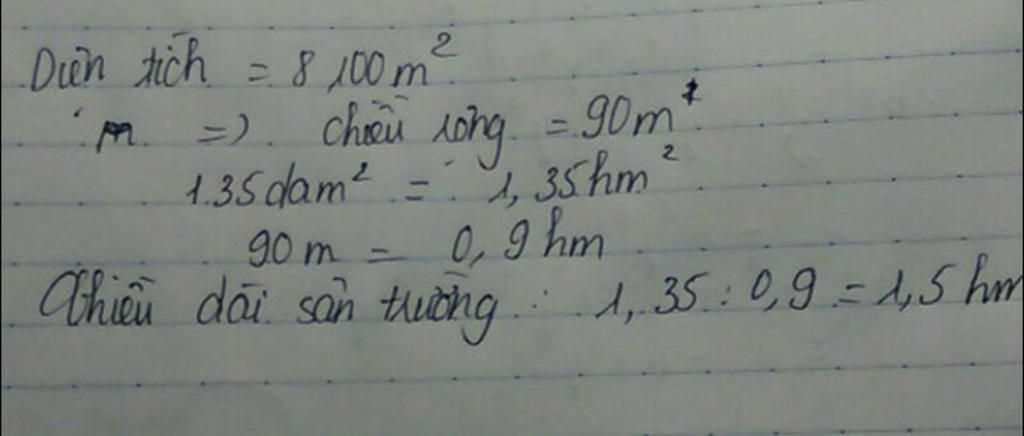 Diện tích = 8100m²
m => chiều rộng = 90m
135dam² = 1,35hm²
90m = 0,9hm
Chiều dài sân trường : 1,35 : 0,9 = 1,5 hm